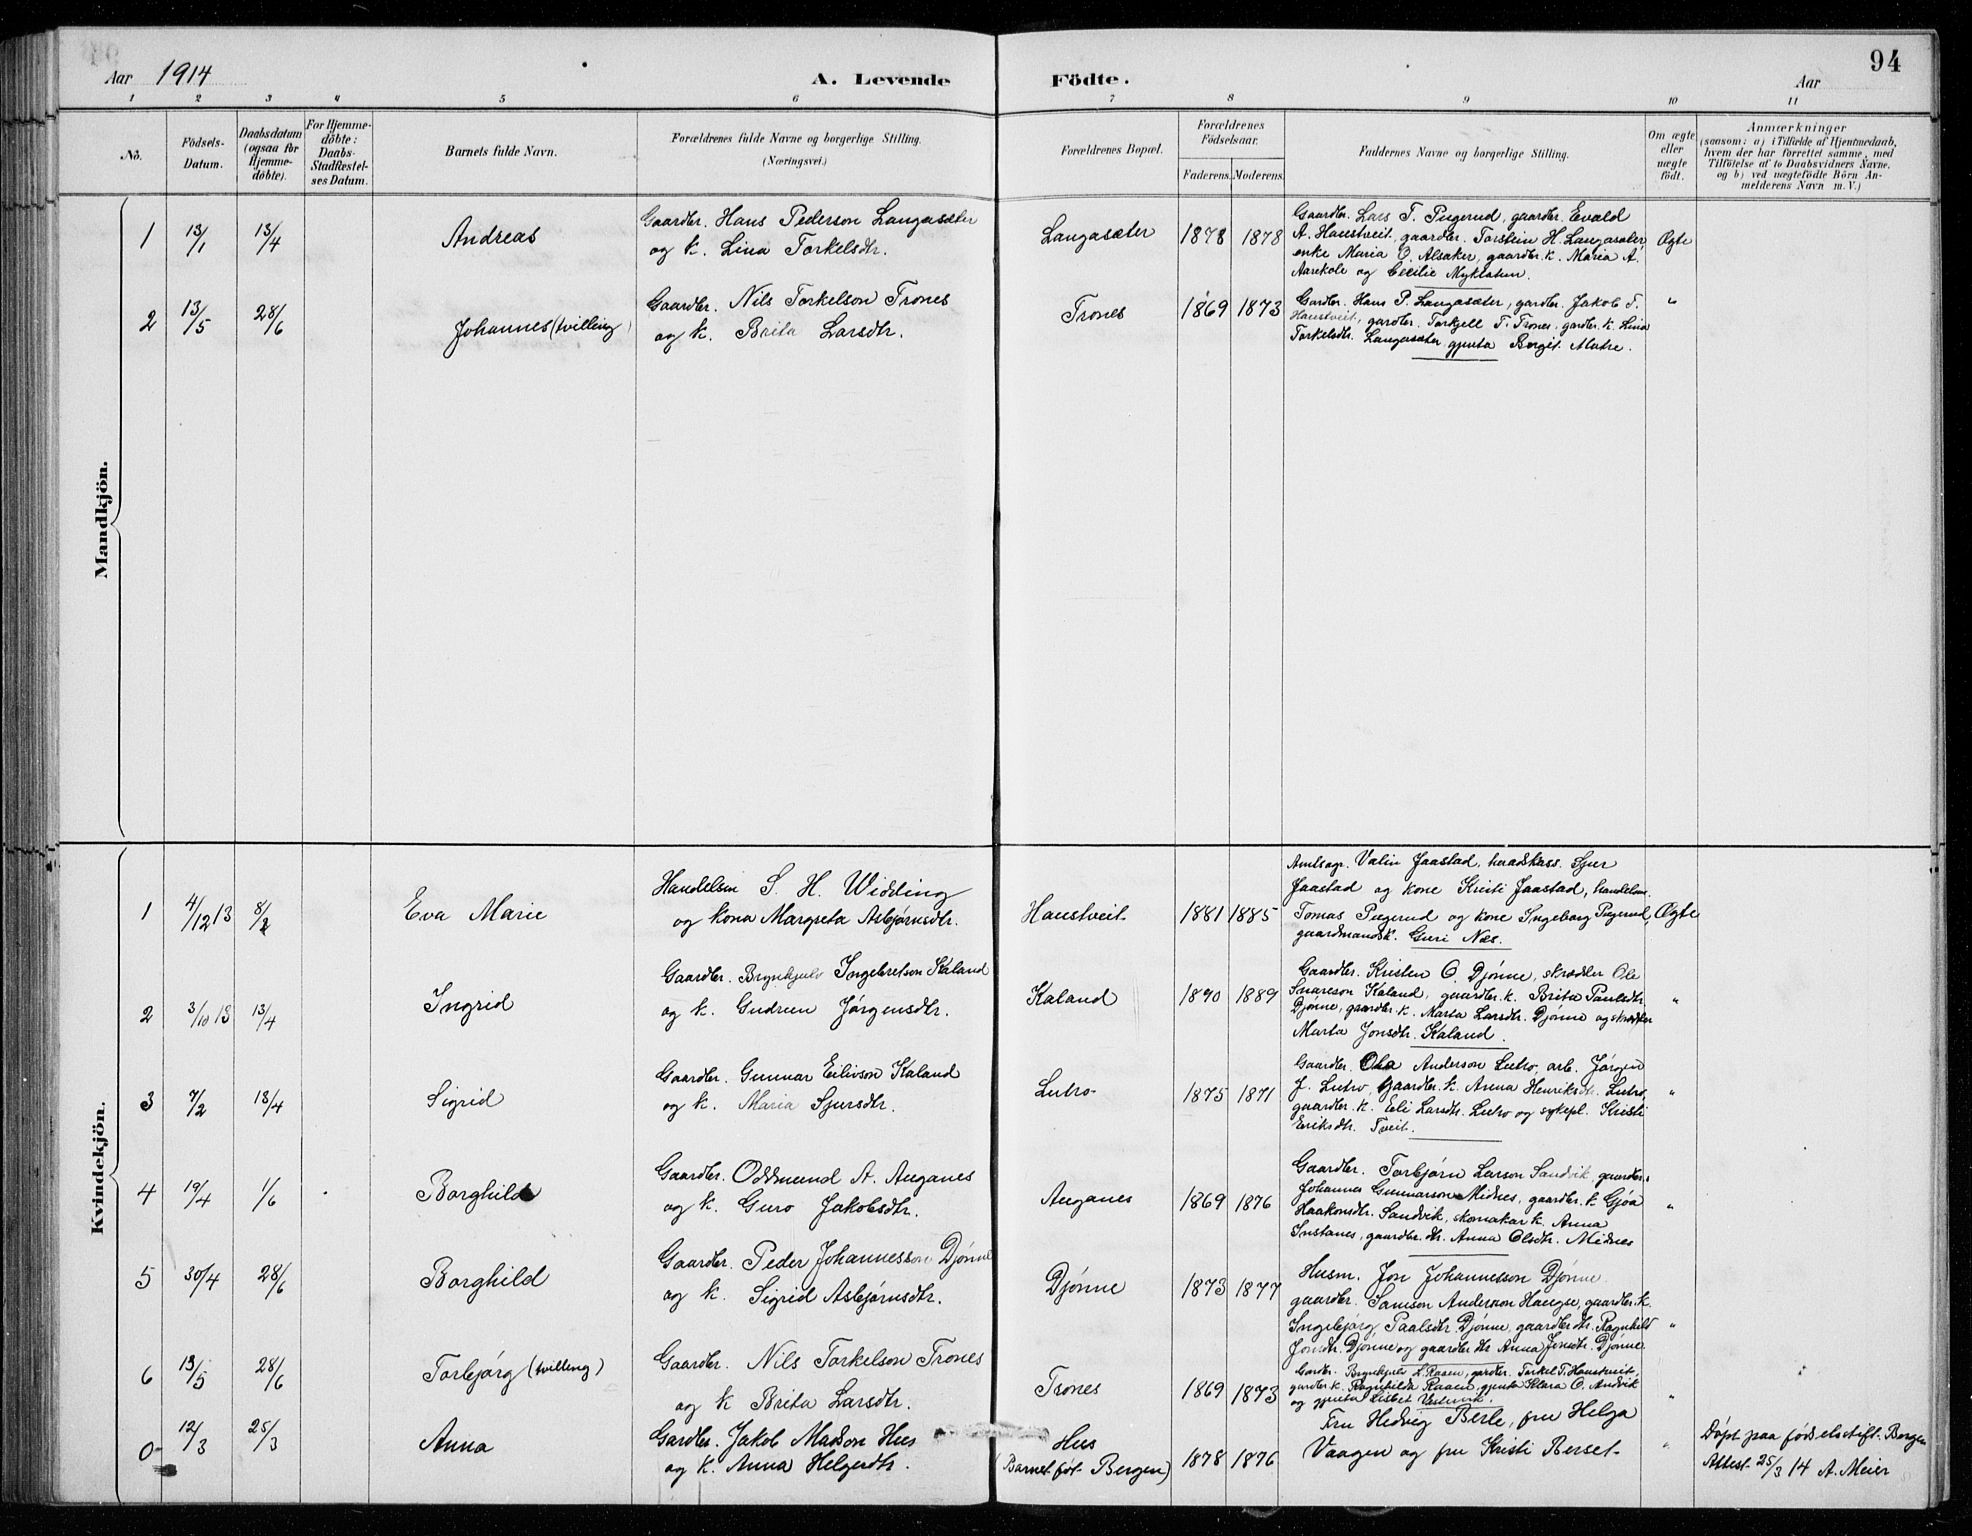 Aar 1914 A. Levende Födte. Aar 94
1 2 3 4 5 6 7 8 9 10 11
No.
Födsels-Datum.
Daabsdatum (ogsaa for Hjemme-döbte).
For Hjemme-döbte: Daabs-Stadfæstel-ses Datum.
Barnets fulde Navn.
Forældrenes fulde Navne og borgerlige Stilling. (Næringsvei.)
Forældrenes Bopæl.
Forældrenes Födselsaar.
Faderens. Moderens.
Faddernes Navne og borgerlige Stilling.
Om ægte eller uægte födt.
Anmærkninger
(saasom: a) i Tilfælde af Hjemmedaab,
hvem der har forrettet samme, med
Tilföielse af to Daabsvidners Navne.
og b) ved uægtefödte Börn An-
melderens Navn m. V.)
Mandkjön.
1 13/1 13/4 Andreas
Gaardbr. Hans Pederson Langasæter
og k. Lina Torkelsdtr.
Langasæter 1878 1878
Gaardbr. Lars T. Pugerud, gaardbr. Evald
A. Haustveit, gaardbr. Torstein H. Langasæter,
enke Maria O. Alsaker, gaardbr. k. Maria A.
Aarekole og Cecilie Myklatun.
Ægte
2 13/5 28/6 Johannes (tvilling)
Gaardbr. Nils Torkelson Trones
og k. Brita Larsdtr.
Trones 1869 1873
Gardbr. Hans P. Langasæter, gardbr. Jakob T.
Haustveit, gardbr. Torkjell T. Trones, gardbr. k. Lina
Torkelsdtr. Langasæter, gjenta Bergit Matre.
"
Kvindekjön.
1 4/12 13 8/2 Eva Marie
Handelsm S. H. Widding
og kona Margreta Asbjørnsdtr.
Haustveit 1881 1885
Amtsagr. Valin Jaastad, heradskass. Sjur
Jaastad og kone Kristi Jaastad, handelsm.
Tomas Pugerud og kone Ingeborg Pugerud,
gaardmandsk. Guri Næs.
Ægte
2 3/10 13 13/4 Ingrid
Gaardbr. Brynkjulv Ingebretson Kaland
og k. Gudrun Jørgensdtr.
Kaland 1890 1889
Gaardbr. Kristen O. Djønne, skrædder Ole
Snareson Kaland, gaardbr. k. Brita Paulsdtr.
Djønne, gaardbr. k. Marta Larsdtr. Djønne og skrædder
Marta Jonsdtr. Kaland.
"
3 7/2 13/4 Sigrid
Gaardbr. Gunnar Eilivson Kaland
og k. Maria Sjursdtr.
Lutro 1875 1871
Gaardbr. Ola Anderson Lutro, arb. Jørgen
J. Lutro, gaardbr. k. Anna Henriksdtr. Lutro,
gaardbr. k. Eli Larsdtr. Lutro og sykepl. Kristi
Eriksdtr. Tveit.
"
4 19/4 1/6 Borghild
Gaardbr. Oddmund A. Auganes
og k. Guro Jakobsdtr.
Auganes 1869 1876
Gaardbr. Torbjørn Larson Sandvik, gaardbr.
Johannes Gunnarson Midnes, gaardbr. k. Gjøa
Haakonsdtr. Sandvik, skomakar k. Anna
Instanes, gaardbr. dtr. Anna Olsdtr. Midnes
"
5 30/4 28/6 Borghild
Gaardbr. Peder Johannesson Djønne
og k. Sigrid Asbjørnsdtr.
Djønne 1873 1877
Husm. Jon Johannesson Djønne
gaardbr. Samson Anderson Haugse, gaardbr. k.
Ingebjørg Paalsdtr Djønne, gaardbr dtr. Ragnhild
Jonsdtr. Djønne og gaardbr dtr Anna Jonsdtr. Djønne
"
6 13/5 28/6 Torbjørg (tvilling)
Gaardbr. Nils Torkelson Trones
og k Brita Larsdtr.
Trones 1869 1873
Gardbr. Brynkjulv L. Raaen, gardbr. Torkel T. Haustveit,
gardbr k. Ragnhilda Raaen, gjenta Klara O. Andvik
og gjenta Lisbet Vestervik.
"
0 12/3 25/3 Anna
Gardbr. Jakob Madson Hus
og k. Anna Helgesdtr.
Hus
(Barnet føt Bergen) 1878 1876
Fru Hedvig Berle, fru Helga
Vaagen og fru Kristi Berset
"
Døpt paa fødselsstift. Bergen
Attest 25/3 14 A. Meier